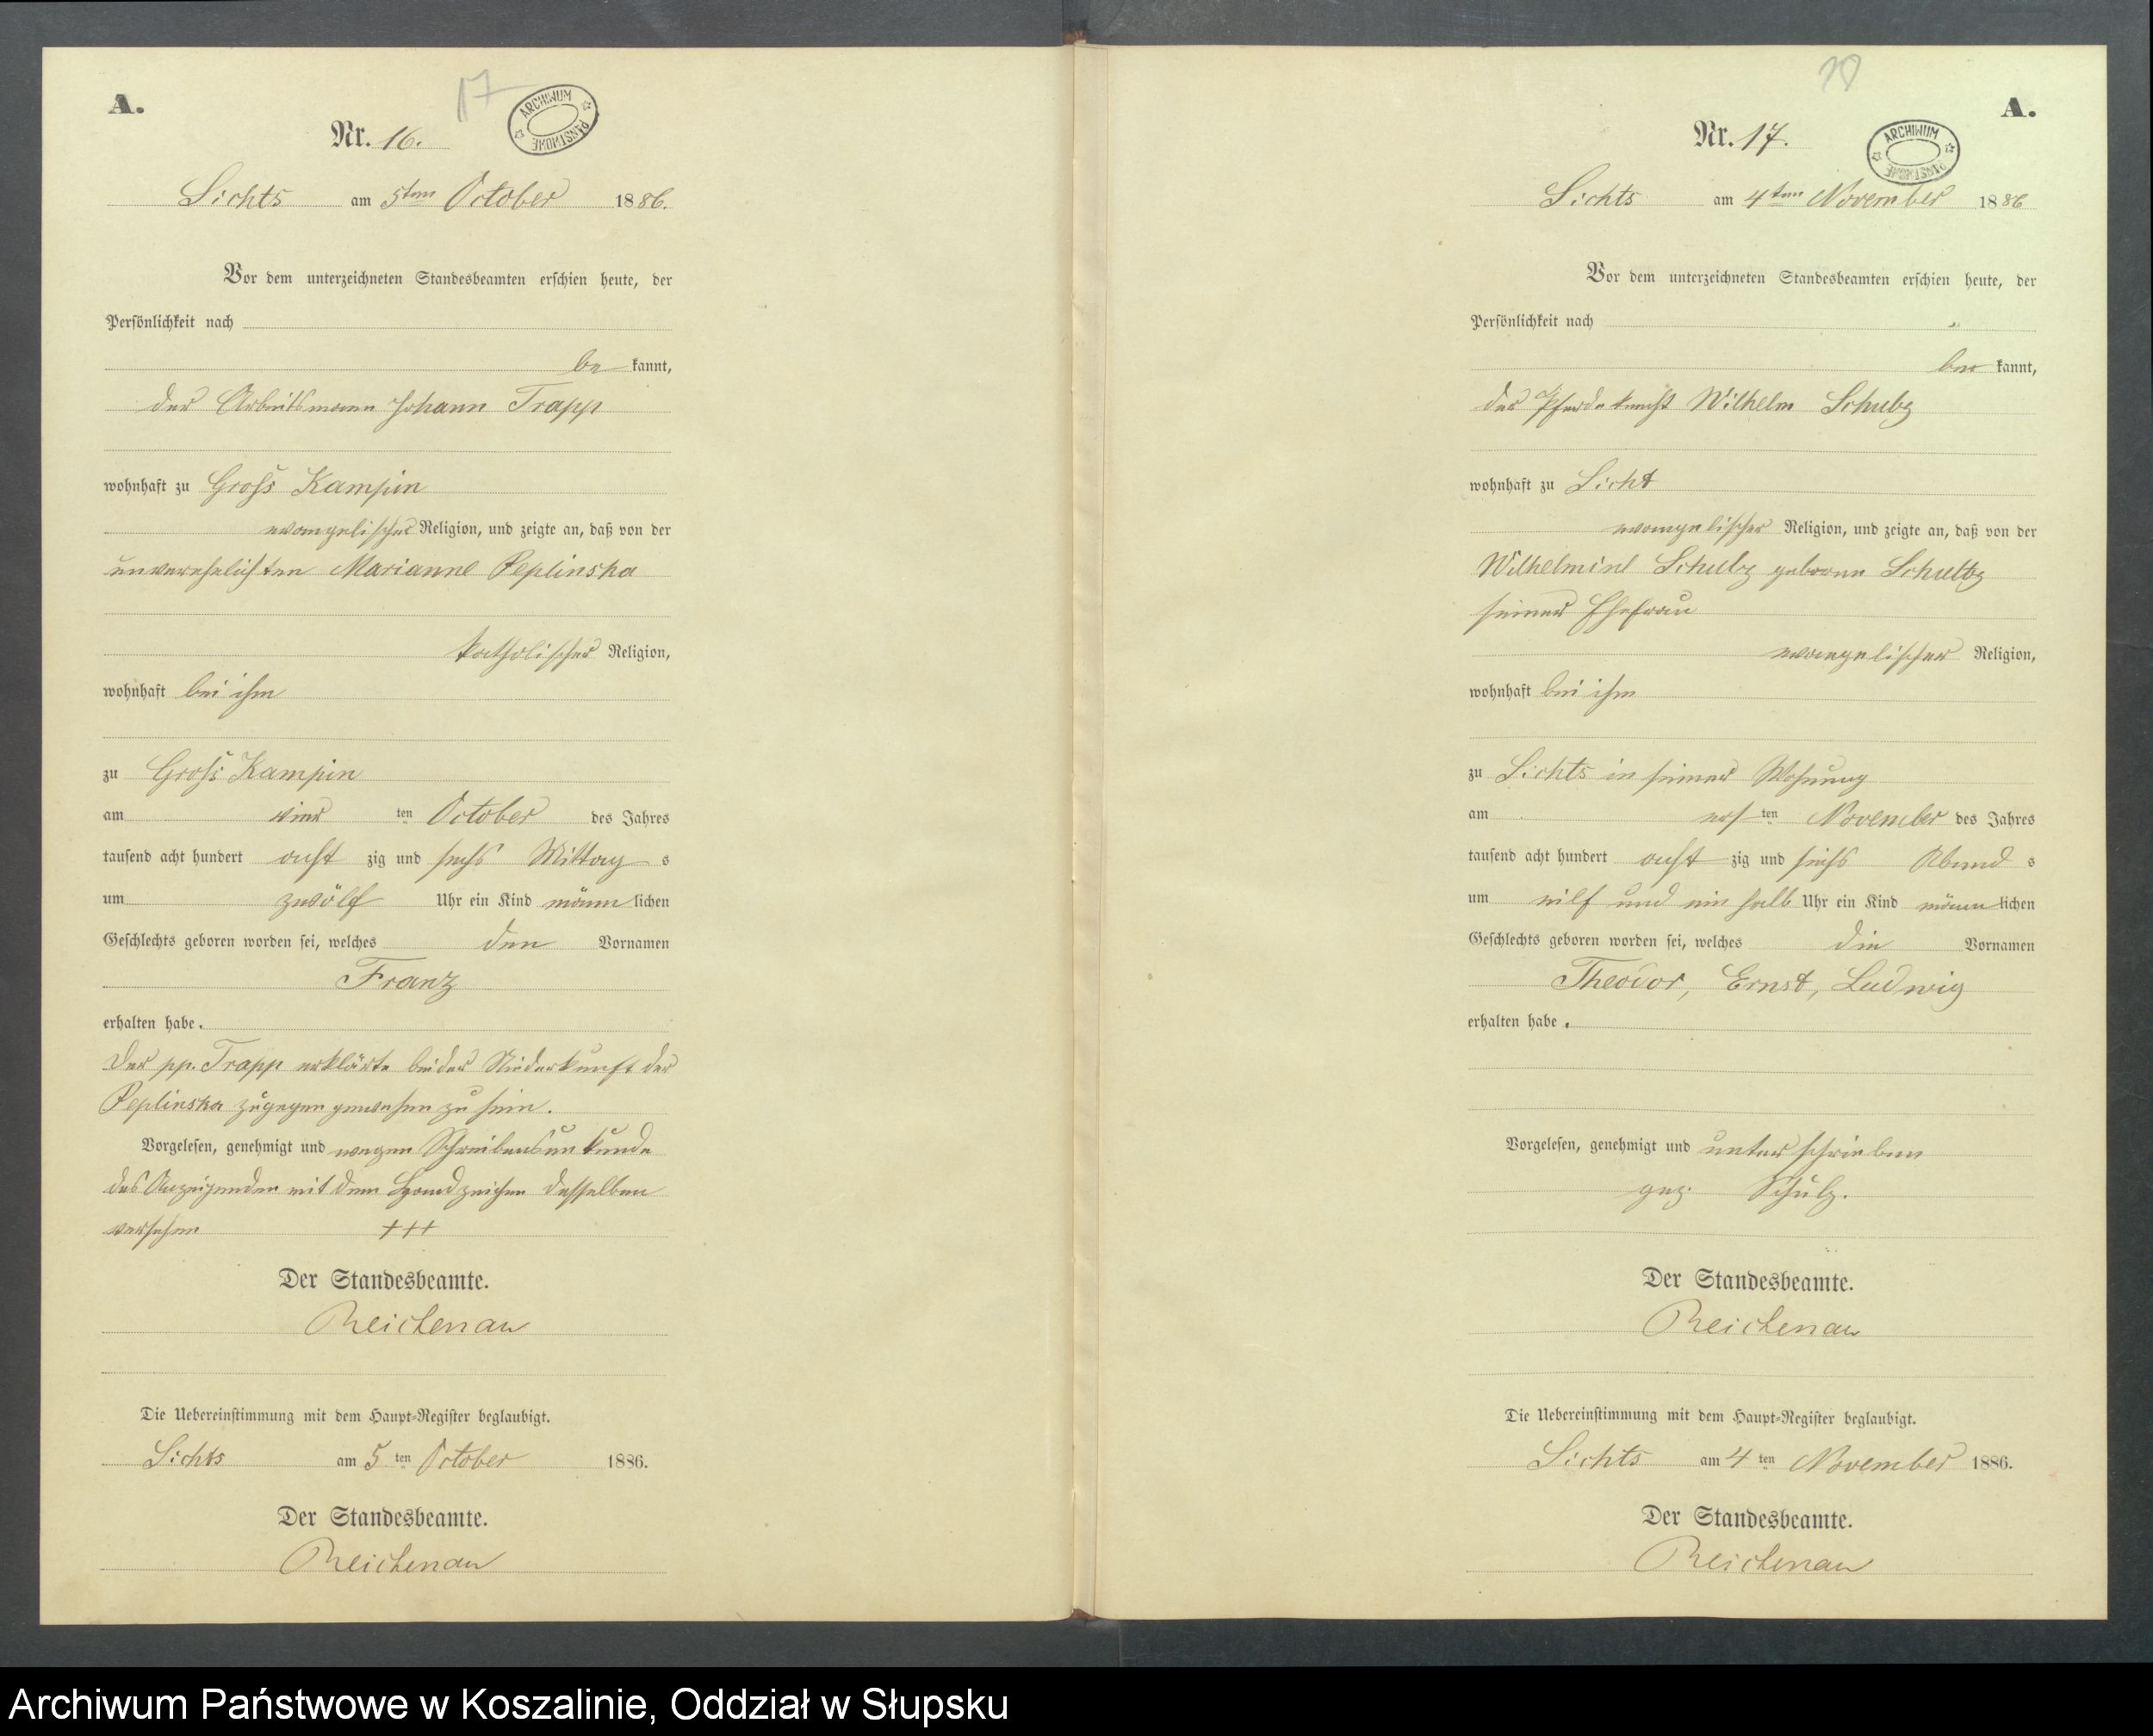 17
A.
Nr. 16.
ARCHIWUM PAŃSTWOWE
Lichts am 5ten October 1886.
Vor dem unterzeichneten Standesbeamten erschien heute, der
Persönlichkeit nach
be kannt,
der Arbeitsmann Johann Trapp
wohnhaft zu Groß Kampin
evangelischer Religion, und zeigte an, daß von der
unverehelichten Marianne Peplinska
katholischer Religion,
wohnhaft bei ihm
zu Groß Kampin
am vier ten October des Jahres
tausend acht hundert acht zig und sechs Mittag s
um zwölf Uhr ein Kind männ lichen
Geschlechts geboren worden sei, welches den Vornamen
Franz
erhalten habe.
Der pp. Trapp erklärte bei der Niederkunft der
Peplinska zugegen gewesen zu sein.
Vorgelesen, genehmigt und wegen Schreibensunkunde
des Anzeigenden mit dem Handzeichen desselben
versehen +++
Der Standesbeamte.
Reichenau
Die Uebereinstimmung mit dem Haupt-Register beglaubigt.
Lichts am 5 ten October 1886.
Der Standesbeamte.
Reichenau
A.
Nr. 17.
ARCHIWUM PAŃSTWOWE
Lichts am 4ten November 1886
Vor dem unterzeichneten Standesbeamten erschien heute, der
Persönlichkeit nach
be kannt,
der Pferdeknecht Wilhelm Schulz
wohnhaft zu Licht
evangelischer Religion, und zeigte an, daß von der
Wilhelmine Schulz geborne Schultz
seiner Ehefrau
evangelischer Religion,
wohnhaft bei ihm
zu Lichts in seiner Wohnung
am ers ten November des Jahres
tausend acht hundert acht zig und sechs Abend s
um eilf und ein halb Uhr ein Kind männ lichen
Geschlechts geboren worden sei, welches die Vornamen
Theodor, Ernst, Ludwig
erhalten habe.
Vorgelesen, genehmigt und unterschrieben
gez. Schulz.
Der Standesbeamte.
Reichenau
Die Uebereinstimmung mit dem Haupt-Register beglaubigt.
Lichts am 4 ten November 1886.
Der Standesbeamte.
Reichenau
Archiwum Państwowe w Koszalinie, Oddział w Słupsku